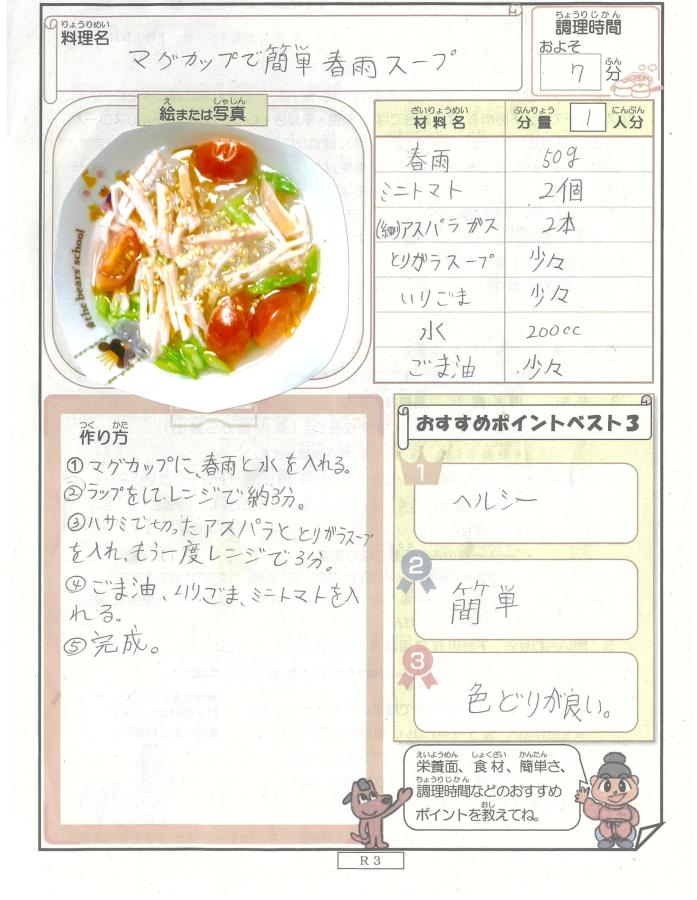 りょうりめい
料理名
マグカップで簡単春雨スープ
ちょうりじかん
調理時間
おおよそ
7 分
ぷん
え しゃしん
絵または写真
the bears' school
ざいりょうめい ぶんりょう にんぶん
材料名 分量 1 人分
春雨 50g
ミニトマト 2個
(細)アスパラガス 2本
とりがらスープ 少々
いりごま 少々
水 200cc
ごま油 少々
つく かた
作り方
①マグカップに、春雨と水を入れる。
②ラップをして、レンジで約3分。
③ハサミで切ったアスパラととりがらスープ
を入れ、もう一度レンジで3分。
④ごま油、いりごま、ミニトマトを入
れる。
⑤完成。
おすすめポイントベスト3
1
ヘルシー
2
簡単
3
色どりが良い。
えいようめん しょくざい かんたん
栄養面、食材、簡単さ、
ちょうりじかん
調理時間などのおすすめ
おし
ポイントを教えてね。
R3